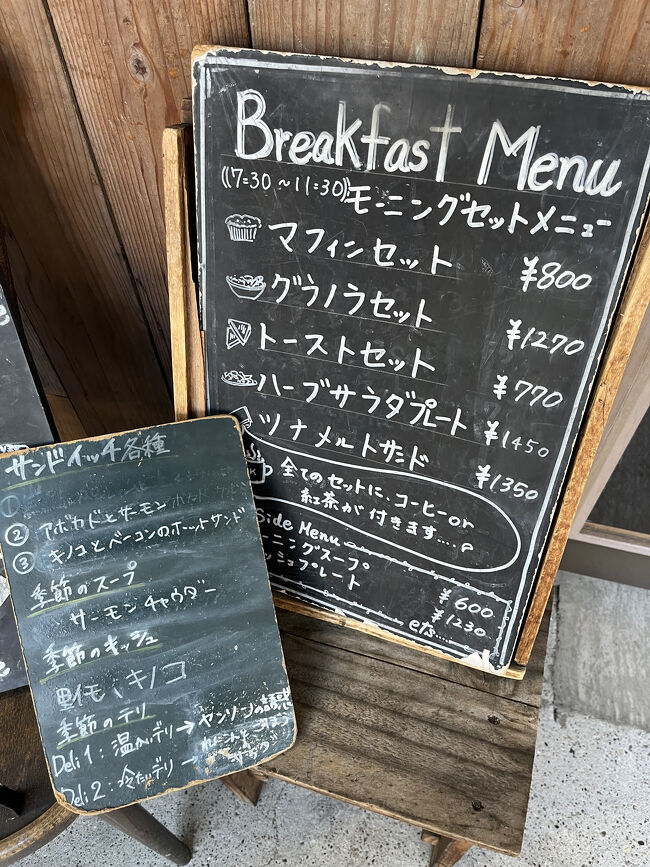 Breakfast Menu
(7:30 ~ 11:30) モーニングセットメニュー
マフィンセット ¥800
グラノラセット ¥1270
トーストセット ¥770
ハーブサラダプレート ¥1450
ツナメルトサンド ¥1350
全てのセットに、コーヒーor
紅茶が付きます....
Side Menu
ーニングスープ ¥600
プレート ¥1230
ets....
サンドイッチ各種
①
② アボカドとサーモン
③ キノコとベーコンのホットサンド
季節のスープ
サーモンチャウダー
季節のキッシュ
里イモ、キノコ
季節のデリ
Deli 1: 温かいデリ→
Deli 2: 冷たいデリ→